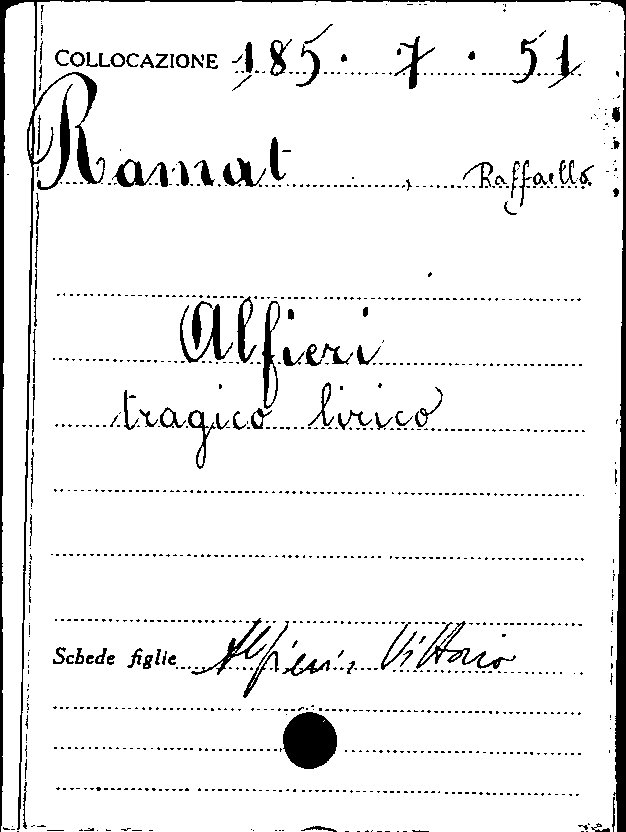 COLLOCAZIONE 185. 7. 51
Ramat, Raffaello
Alfieri
tragico lirico
Schede figlie Alfieri, Vittorio